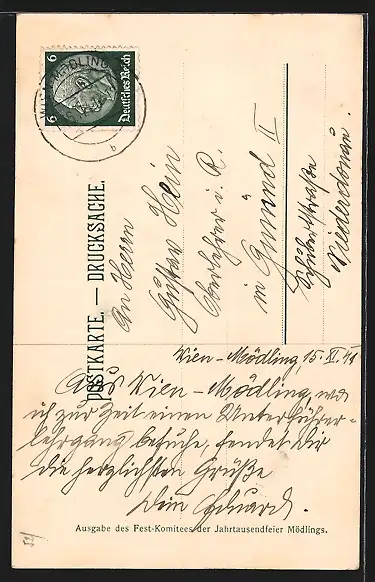 POSTKARTE. — DRUCKSACHE.
Deutsches Reich
6
6
An Herrn
Gustav Hein
Oberlehrer i. R.
in Gmünd II
Schubertstraße
Niederdonau.
Wien-Mödling, 15. XI. 41
Aus Wien-Mödling, wo
ich zur Zeit einen Unterführer-
lehrgang besuche, sendet Dir
die herzlichsten Grüße
Dein Eduard.
Ausgabe des Fest-Komitees der Jahrtausendfeier Mödlings.